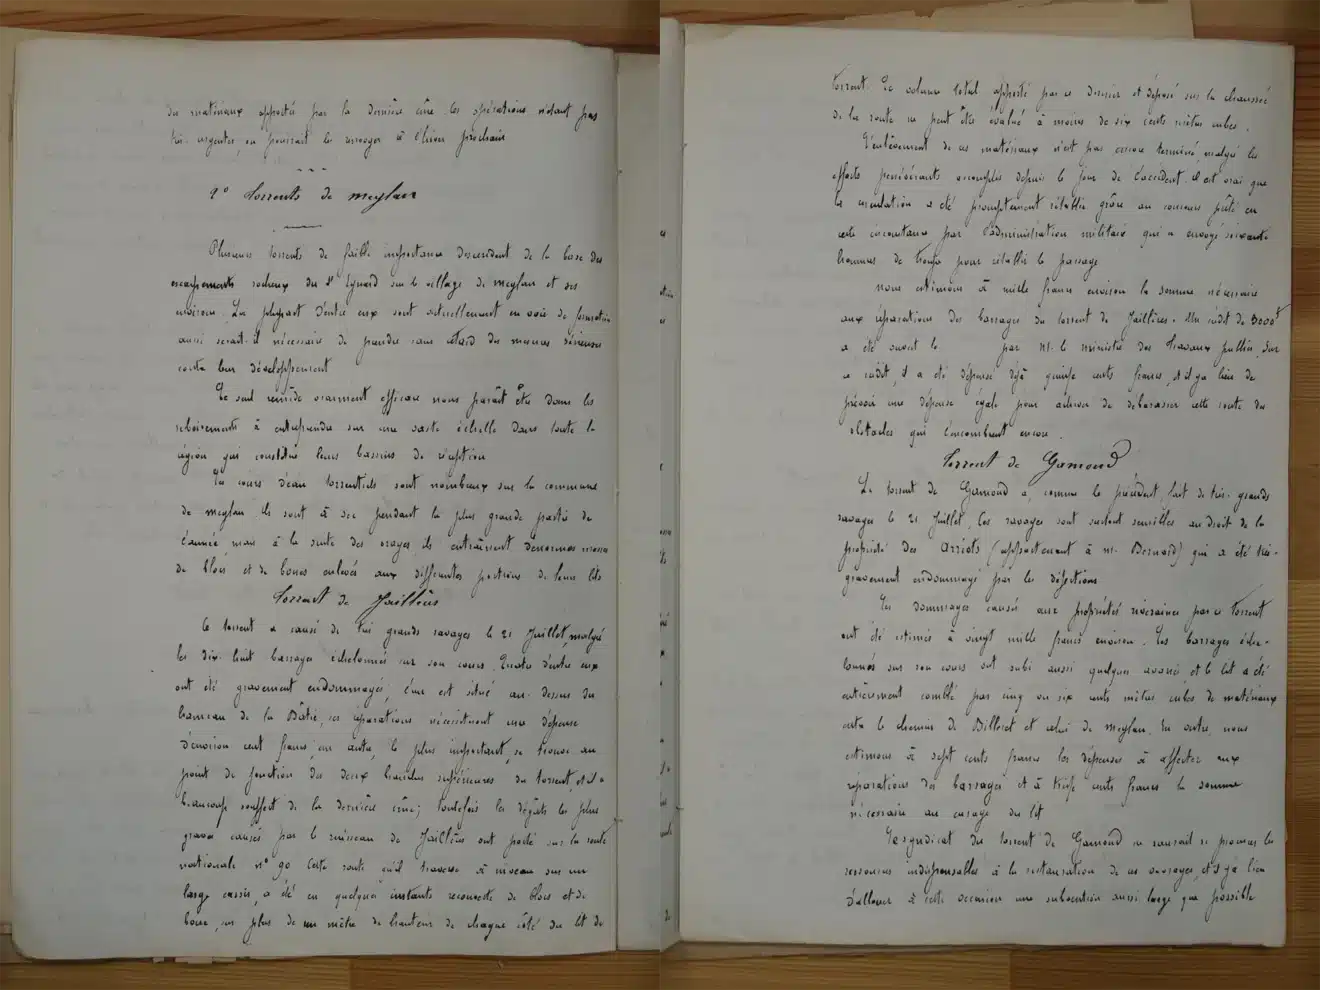 des matériaux apportés par la dernière crûe. les opérations n'étant pas
très urgentes, on pourrait les renvoyer à l'hiver prochain
2° Torrents de Meylan
Plusieurs torrents de faible importance descendent de la base des
escarpements rocheux du St Eynard sur le village de Meylan et ses
environs. La plupart d'entre eux sont actuellement en voie de formation
aussi serait-il nécessaire de prendre sans retard des mesures sérieuses
contre leur développement
Le seul remède vraiment efficace nous paraît être dans les
reboisements à entreprendre sur une vaste échelle dans toute la
région qui constitue leurs bassins de réception
Les cours d'eau torrentiels sont nombreux sur la commune
de Meylan ils sont à sec pendant la plus grande partie de
l'année, mais à la suite des orages, ils entraînent d'énormes masses
de blocs et de boues enlevés aux différentes portions de leurs lits
Torrent de Jaillères
Ce torrent a causé de très grands ravages le 21 Juillet, malgré
les dix-huit barrages échelonnés sur son cours. Quatre d'entre eux
ont été gravement endommagés, l'une est situé au-dessus du
hameau de la Bâtie, ses réparations nécessitent une dépense
d'environ cent francs, un autre, le plus important, se trouve au
point de jonction des deux branches supérieures du torrent, et il a
beaucoup souffert de la dernière crûe; toutefois les dégâts les plus
graves causés par le ruisseau de Jaillères ont porté sur la route
nationale n° 90 Cette route qu'il traverse à niveau sur un
large cassis, a été en quelques instants recouverte de blocs et de
boue, sur plus de un mètre de hauteur de chaque côté du lit du
torrent. Le volume total apporté par ce dernier et déposé sur la chaussée
de la route ne peut être évalué à moins de six cents mètres cubes.
L'enlèvement de ces matériaux n'est pas encore terminé, malgré les
efforts persévérants accomplis depuis le jour de l'accident. il est vrai que
la circulation a été promptement rétablie grâce au concours prêté en
cette circonstance par l'administration militaire qui a envoyé soixante
hommes de troupe pour rétablir le passage
Nous estimons à mille francs environ la somme nécessaire
aux réparations des barrages du torrent de Jaillères. Un crédit de 3000f
a été ouvert le par M. le ministre des Travaux publics, Sur
ce crédit, il a été dépensé déjà quinze cents francs, et il y a lieu de
prévoir une dépense égale pour achever de débarrasser cette route des
obstacles qui l'encombrent encore.
Torrent de Gamond
Le torrent de Gamond a, comme le précédent, fait de très-grands
ravages le 21 Juillet. Ces ravages sont surtout sensibles au droit de la
propriété des Arriots (appartenant à M. Bernard) qui a été très-
gravement endommagée par les déjections
Les dommages causés aux propriétés riveraines par ce torrent
ont été estimés à vingt mille francs environ. Les barrages éche-
lonnés sur son cours ont subi aussi quelques avaries, et le lit a été
entièrement comblé par cinq ou six cents mètres cubes de matériaux
entre le chemin de Billerot et celui de Meylan. En outre, nous
estimons à sept cents francs les dépenses à affecter aux
réparations des barrages et à treize cents francs la somme
nécessaire au curage du lit
Le syndicat du torrent de Gamond ne saurait se procurer les
ressources indispensables à la restauration de ces ouvrages, et il y a lieu
d'allouer à cette occasion une subvention aussi large que possible